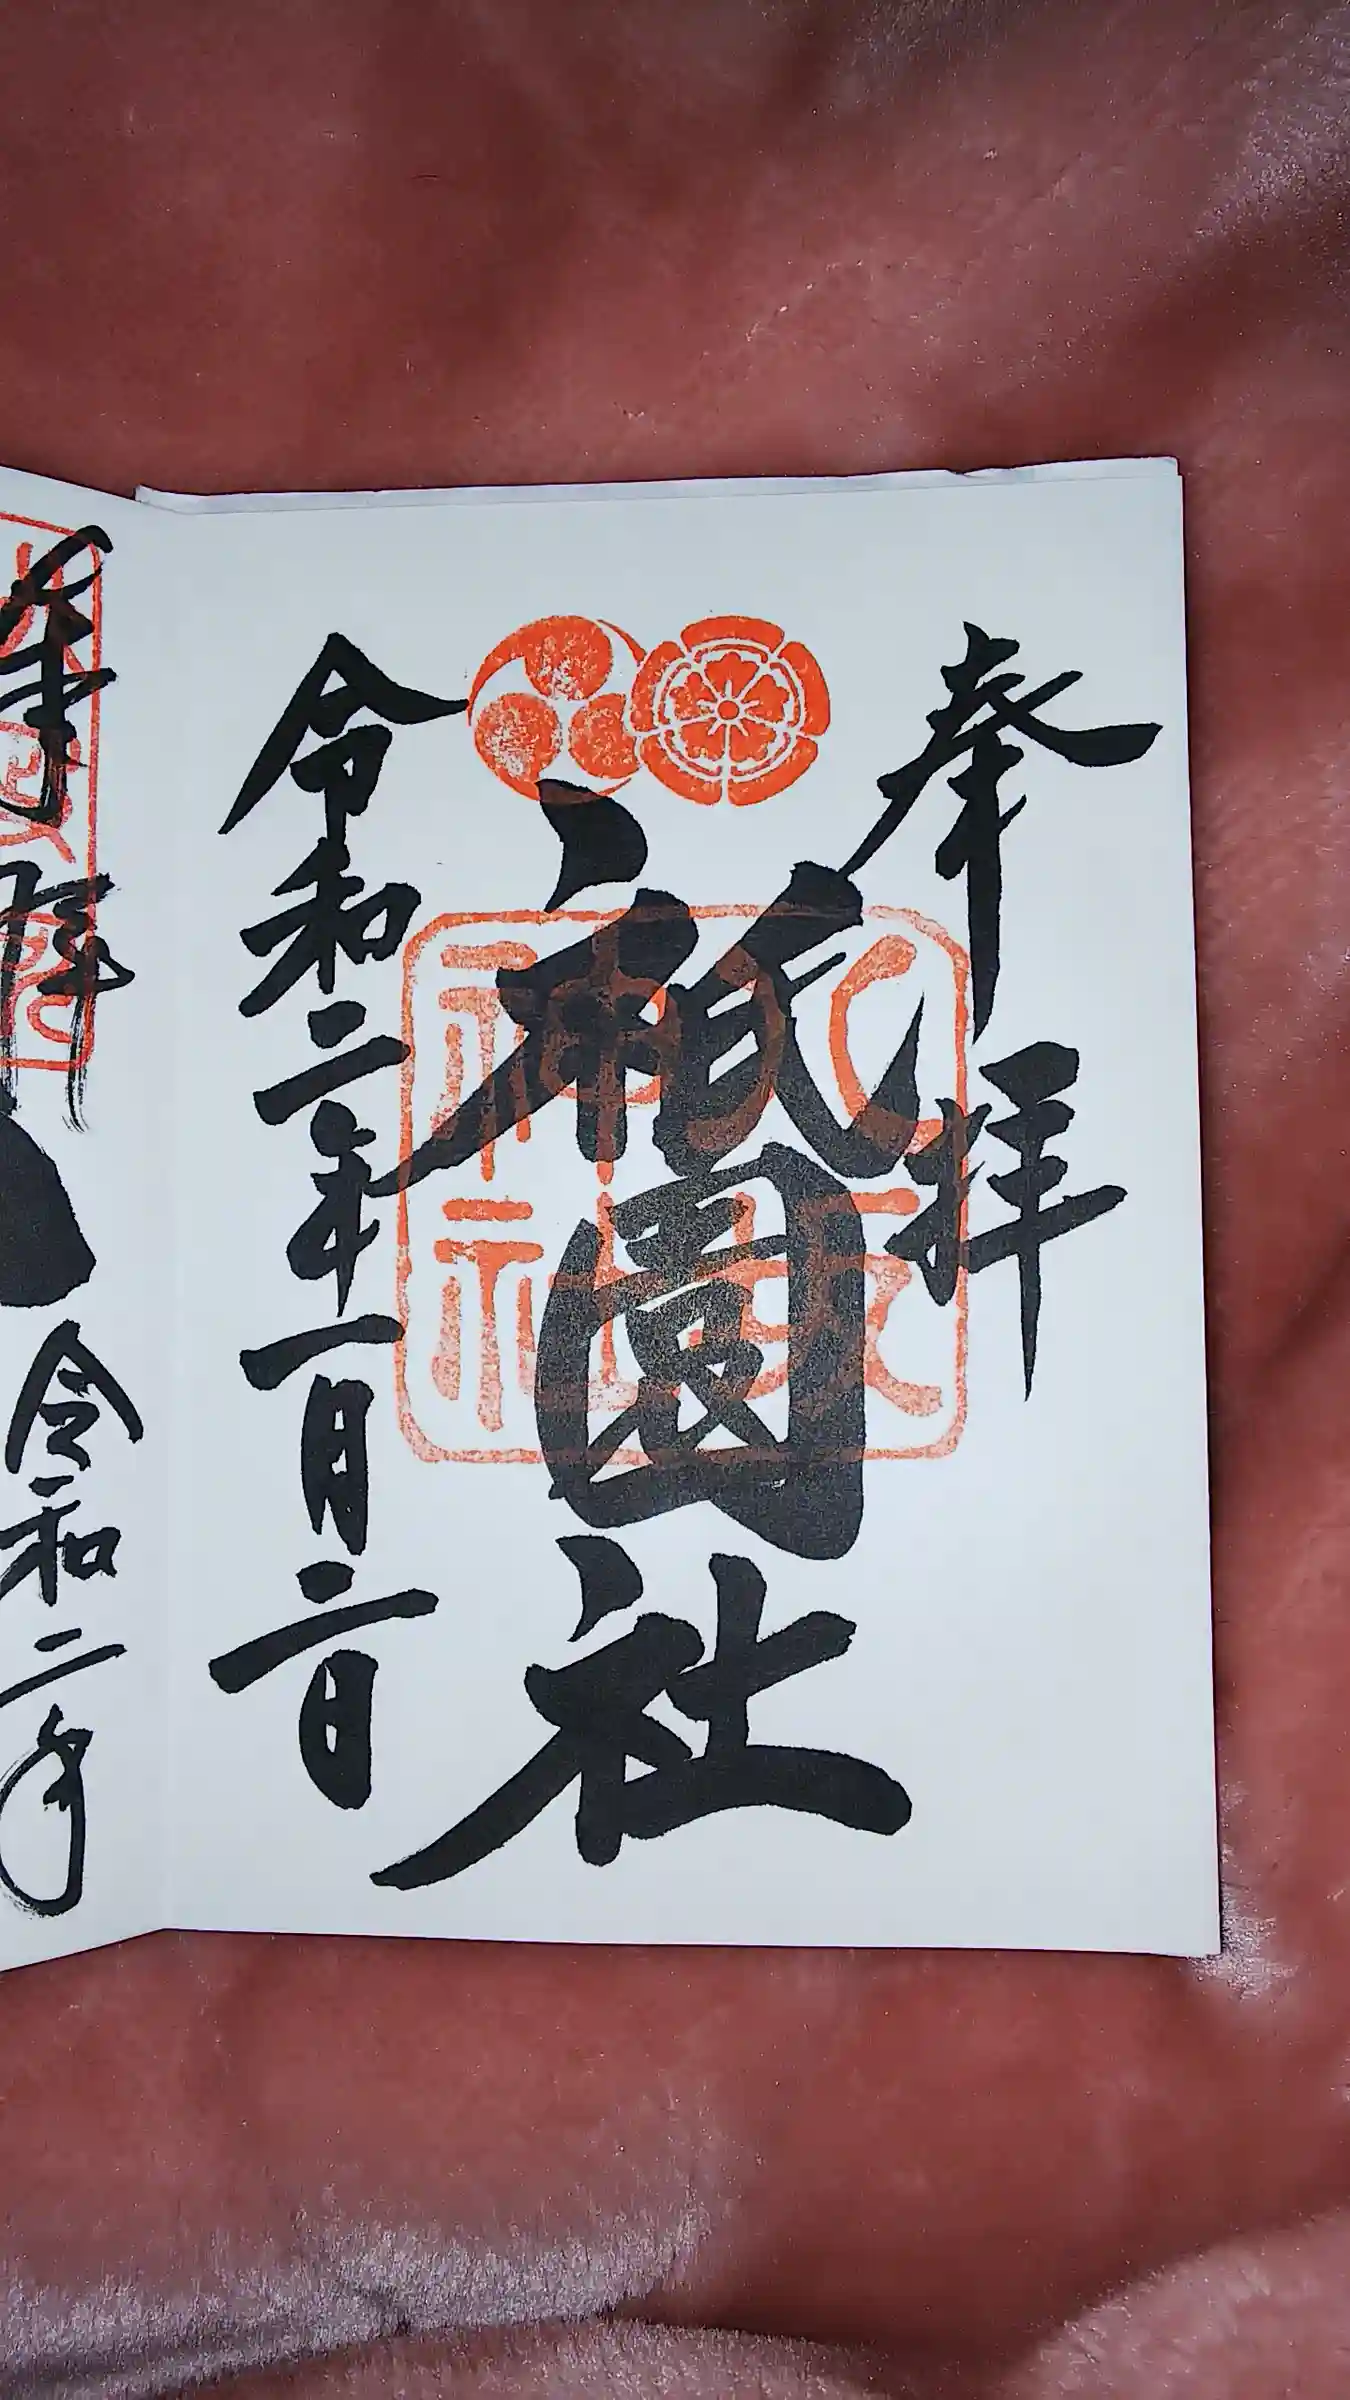 奉拝
祇園社
八坂
神社
令和二年一月二日
奉拝
令和二年